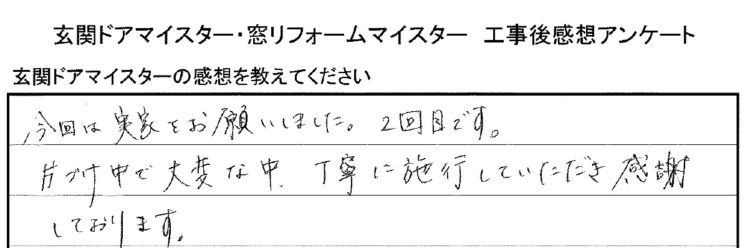 玄関ドアマイスター・窓リフォームマイスター　工事後感想アンケート
玄関ドアマイスターの感想を教えてください
今回は実家をお願いしました。2回目です。
片づけ中で大変な中、丁寧に施行していただき感謝
しております。